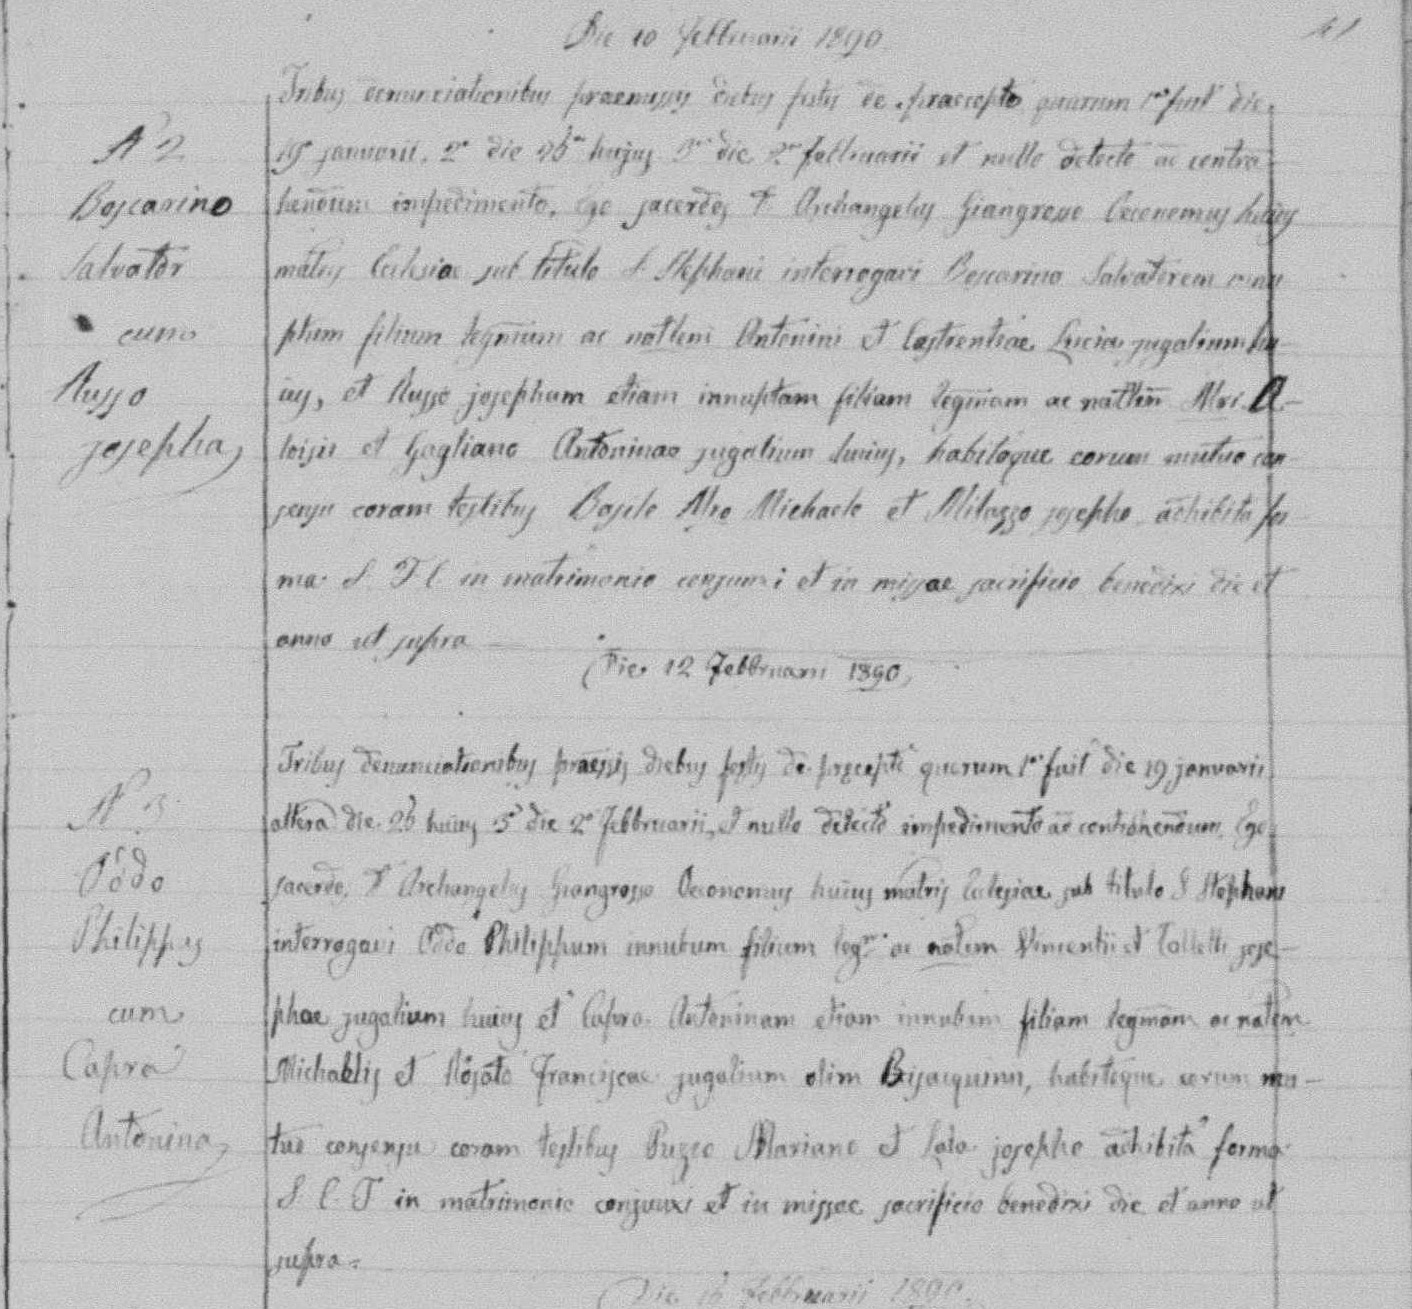 Die 10 Febbruarii 1890
41
Tribus denunciationibus praemissis diebus festis de praecepto quarum 1ª fuit die
N 2
19 januarii, 2ª die 26 hujus 3ª die 2ª Febbruarii et nullo detecto ac contra-
Boscarino
hendum impedimento, Ego sacerdos D. Archangelus Giangrosso Oeconomus hujus
Salvator
matris Eclesiae sub titulo S. Stephani interrogavi Boscarino Salvatorem innu
cum
ptum filium legmum ac natlem Antonini et Castrentiae Lucia jugalium hu-
Russo
ius, et Russo josepham etiam innuptam filiam legmam ac natlem Mri. A-
josepha,
loisii et Gagliano Antoninae jugalium huius, habitoque eorum mutuo con-
sensu coram testibus Basile Mro Michaele et Milazzo josepho, adhibita for-
ma S. T C. in matrimonio conjunxi et in missae sacrificio benedixi die et
anno ut supra
Die 12 Febbruarii 1890,
Tribus denunciationibus praessis diebus festis de precepto quorum 1ª fuit die 19 januarii
N 3
altera die 26 huius 3ª die 2ª Febbruarii, et nullo detecto impedimento ac contrahendum, Ego
Oddo
sacerdos D. Archangelus Giangrosso Oeconomus huius matris Eclesiae sub titulo S Stephani
Philippus
interrogavi Oddo Philippum innubum filium legm ac natlem Vincentii et Colletti jose-
cum
phae jugalium huius et Capra Antoninam etiam innubam filiam legmam ac natlem
Capra
Michaelis et Rosato Franciscae jugalium olim Bisacquini, habitoque eorum mu-
Antonina,
tuo consensu coram testibus Puzzo Mariano et Lala josepho adhibita forma
S. C. T in matrimonio conjunxi et in missae sacrificio benedixi die et anno ut
supra.
Die Febbruarii 1890.